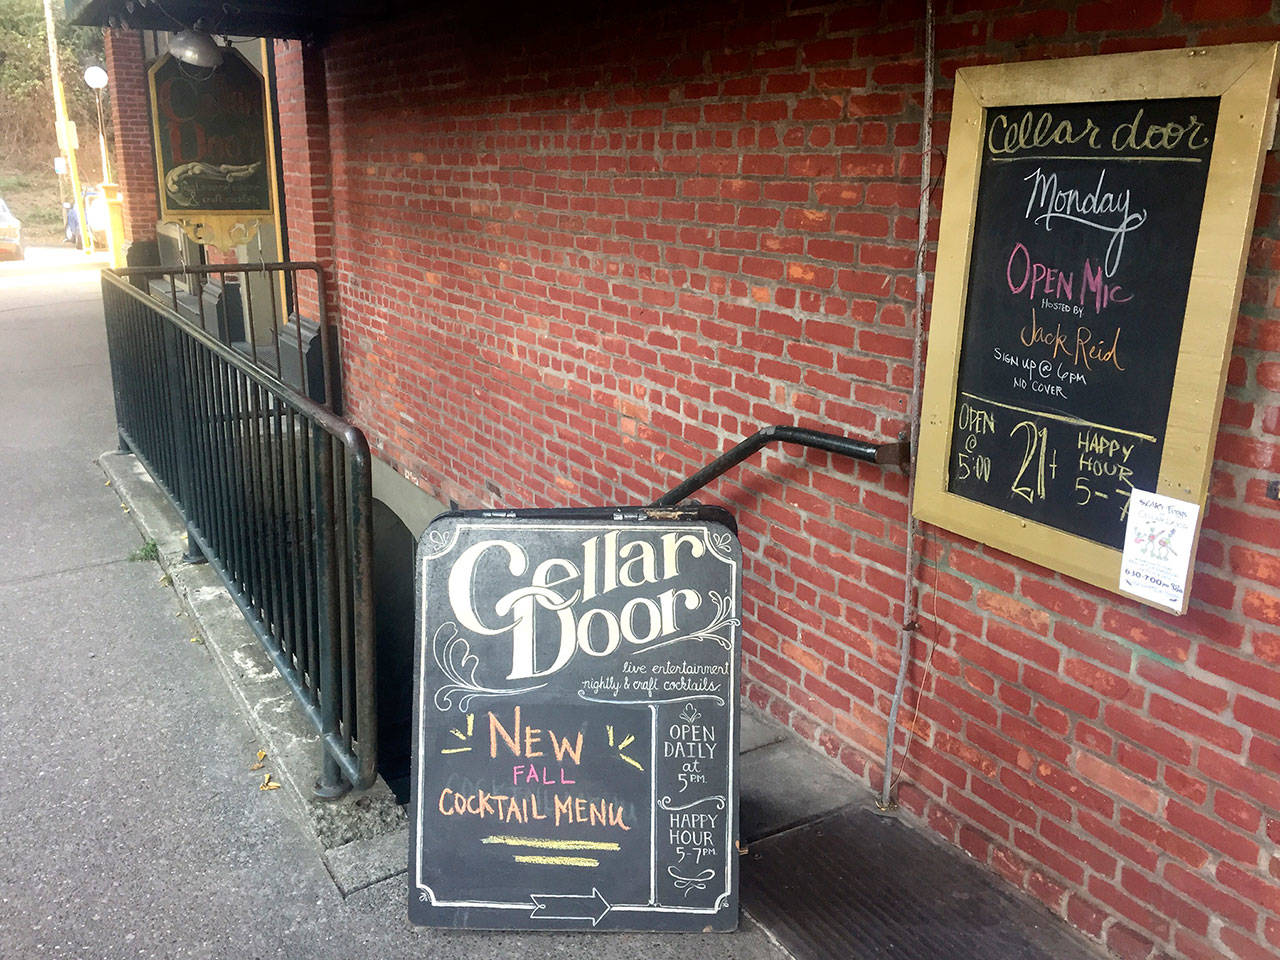 Cellar
Door
craft cocktails
Cellar
Door
live entertainment
nightly & craft cocktails.
NEW
FALL
COCKTAIL MENU
OPEN
DAILY
at
5 P.M.
HAPPY
HOUR
5-7 P.M.
cellar door
Monday
OPEN MIC
HOSTED BY
Jack Reid
SIGN UP @ 6PM
NO COVER
OPEN
@
5:00
21+
HAPPY
HOUR
5-7
630-700pm